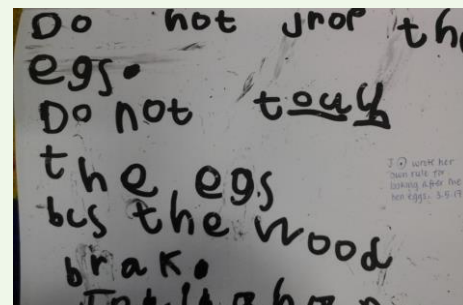 Do not jrop the
egs.
Do not touy
the egs
bcs the wood
brak.
J wrote her
own rule for
looking after the
hen eggs. 3.5.17